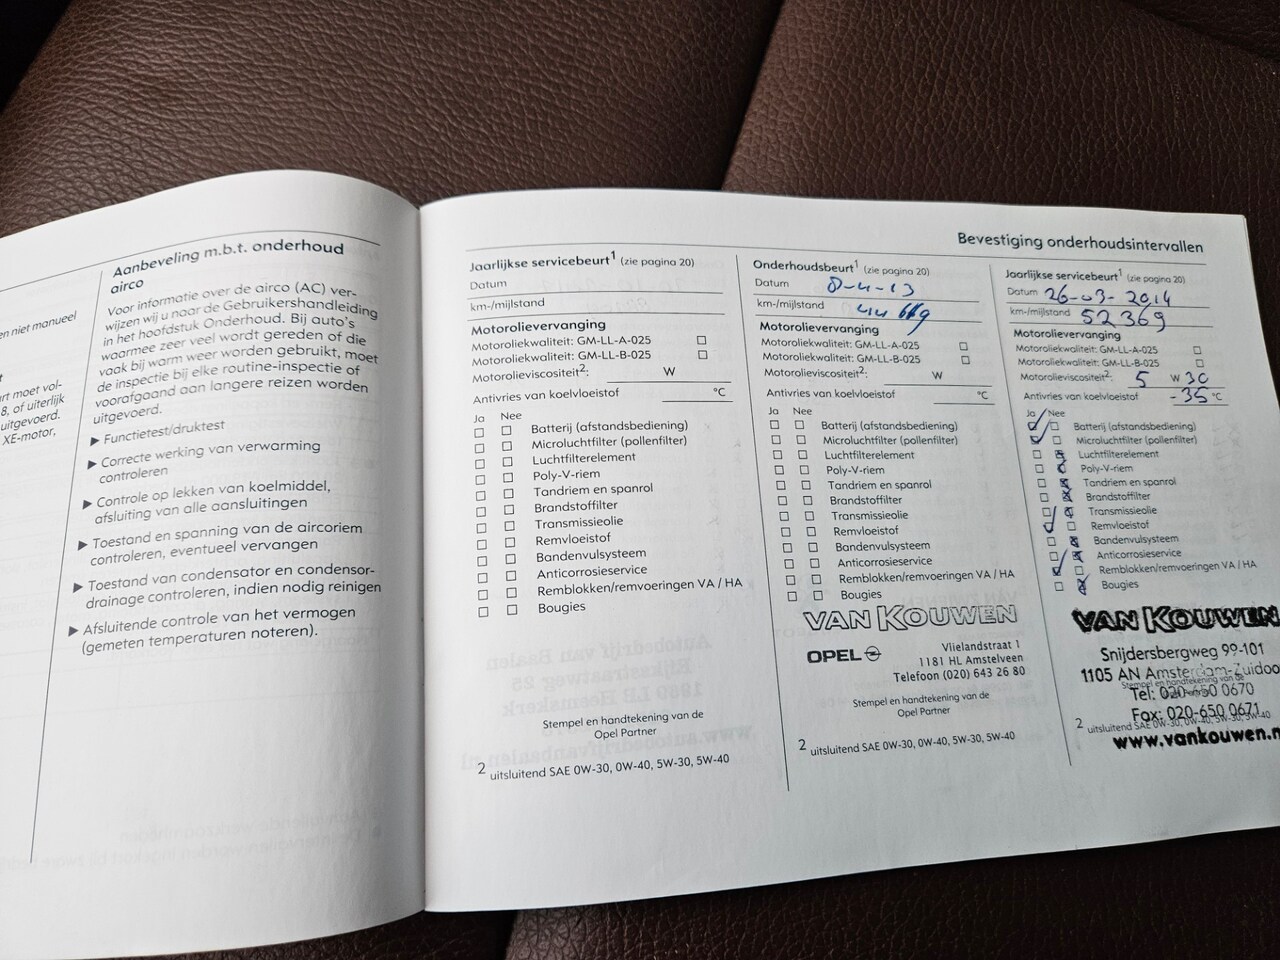 en niet manueel
rt moet vol-
8, of uiterlijk
uitgevoerd.
XE-motor,
Aanbeveling m.b.t. onderhoud
airco
Voor informatie over de airco (AC) ver-
wijzen wij u naar de Gebruikershandleiding
in het hoofdstuk Onderhoud. Bij auto's
waarmee zeer veel wordt gereden of die
vaak bij warm weer worden gebruikt, moet
de inspectie bij elke routine-inspectie of
voorafgaand aan langere reizen worden
uitgevoerd.
▶ Functietest/druktest
▶ Correcte werking van verwarming
controleren
▶ Controle op lekken van koelmiddel,
afsluiting van alle aansluitingen
▶ Toestand en spanning van de aircoriem
controleren, eventueel vervangen
▶ Toestand van condensator en condensor-
drainage controleren, indien nodig reinigen
▶ Afsluitende controle van het vermogen
(gemeten temperaturen noteren).
Bevestiging onderhoudsintervallen
Jaarlijkse servicebeurt1 (zie pagina 20)
Datum
km-/mijlstand
Motorolievervanging
Motoroliekwaliteit: GM-LL-A-025
Motoroliekwaliteit: GM-LL-B-025
Motorolieviscositeit2: W
Antivries van koelvloeistof °C
Ja Nee
Batterij (afstandsbediening)
Microluchtfilter (pollenfilter)
Luchtfilterelement
Poly-V-riem
Tandriem en spanrol
Brandstoffilter
Transmissieolie
Remvloeistof
Bandenvulsysteem
Anticorrosieservice
Remblokken/remvoeringen VA / HA
Bougies
Stempel en handtekening van de
Opel Partner
2 uitsluitend SAE 0W-30, 0W-40, 5W-30, 5W-40
Onderhoudsbeurt1 (zie pagina 20)
Datum 8-4-13
km-/mijlstand 44 669
Motorolievervanging
Motoroliekwaliteit: GM-LL-A-025
Motoroliekwaliteit: GM-LL-B-025
Motorolieviscositeit2: W
Antivries van koelvloeistof °C
Ja Nee
Batterij (afstandsbediening)
Microluchtfilter (pollenfilter)
Luchtfilterelement
Poly-V-riem
Tandriem en spanrol
Brandstoffilter
Transmissieolie
Remvloeistof
Bandenvulsysteem
Anticorrosieservice
Remblokken/remvoeringen VA / HA
Bougies
VAN KOUWEN
OPEL
Vlielandstraat 1
1181 HL Amstelveen
Telefoon (020) 643 26 80
Stempel en handtekening van de
Opel Partner
2 uitsluitend SAE 0W-30, 0W-40, 5W-30, 5W-40
Jaarlijkse servicebeurt1 (zie pagina 20)
Datum 26-03-2014
km-/mijlstand 52369
Motorolievervanging
Motoroliekwaliteit: GM-LL-A-025
Motoroliekwaliteit: GM-LL-B-025
Motorolieviscositeit2: 5 W 30
Antivries van koelvloeistof -35 °C
Ja Nee
Batterij (afstandsbediening)
Microluchtfilter (pollenfilter)
Luchtfilterelement
Poly-V-riem
Tandriem en spanrol
Brandstoffilter
Transmissieolie
Remvloeistof
Bandenvulsysteem
Anticorrosieservice
Remblokken/remvoeringen VA / HA
Bougies
VAN KOUWEN
Snijdersbergweg 99-101
1105 AN Amsterdam-Zuidoo
Stempel en handtekening van de
Tel: 020-650 0670
Fax: 020-650 0671
2 uitsluitend SAE 0W-30, 0W-40, 5W-30, 5W-40
www.vankouwen.n